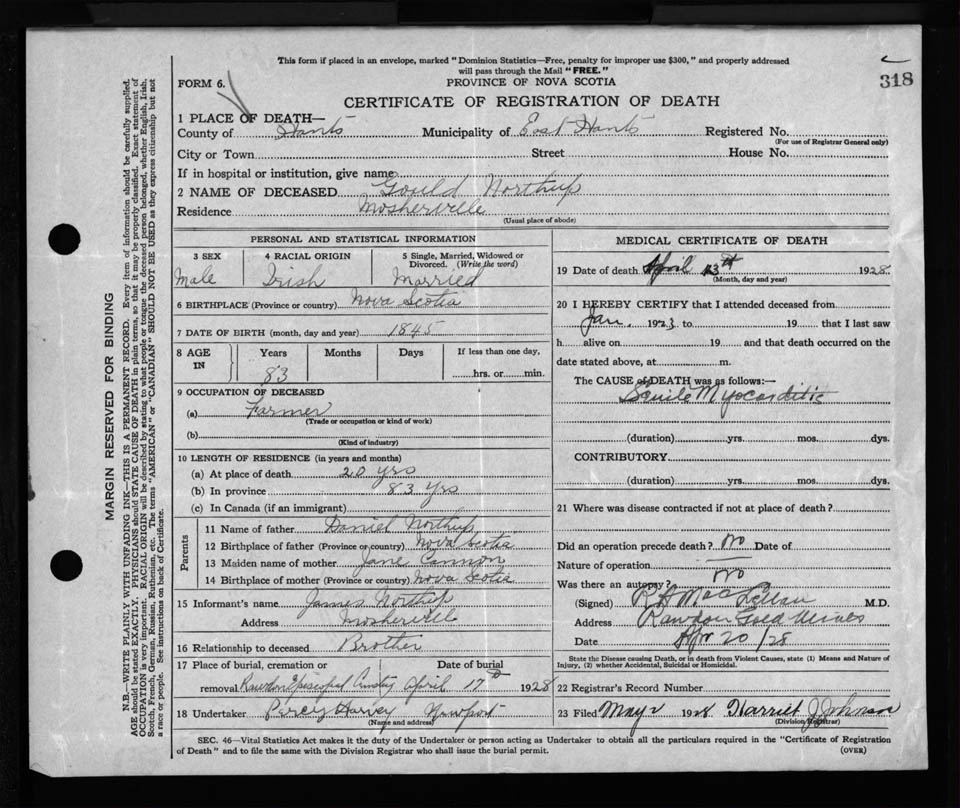 This form if placed in an envelope, marked "Dominion Statistics—Free, penalty for improper use $300," and properly addressed
will pass through the Mail "FREE."
318
FORM 6. PROVINCE OF NOVA SCOTIA
CERTIFICATE OF REGISTRATION OF DEATH
1 PLACE OF DEATH—
County of Hants Municipality of East Hants Registered No.
(For use of Registrar General only)
City or Town Street House No.
If in hospital or institution, give name
2 NAME OF DECEASED Gould Northup
Residence Mosherville
(Usual place of abode)
PERSONAL AND STATISTICAL INFORMATION
3 SEX 4 RACIAL ORIGIN 5 Single, Married, Widowed or
Divorced. (Write the word)
Male Irish Married
6 BIRTHPLACE (Province or country) Nova Scotia
7 DATE OF BIRTH (month, day and year) 1845
8 AGE IN Years Months Days If less than one day,
83 hrs. or min.
9 OCCUPATION OF DECEASED
(a) Farmer
(Trade or occupation or kind of work)
(b)
(Kind of industry)
10 LENGTH OF RESIDENCE (in years and months)
(a) At place of death 20 yrs
(b) In province 83 yrs
(c) In Canada (if an immigrant)
Parents
11 Name of father Daniel Northup
12 Birthplace of father (Province or country) Nova Scotia
13 Maiden name of mother Jane Cannon
14 Birthplace of mother (Province or country) Nova Scotia
15 Informant's name James Northup
Address Mosherville
16 Relationship to deceased Brother
17 Place of burial, cremation or Date of burial
removal Rawdon Episcopal April 17th 1928
18 Undertaker Percy Harvey Newport
(Name and address)
MEDICAL CERTIFICATE OF DEATH
19 Date of death April 13th 1928.
(Month, day and year)
20 I HEREBY CERTIFY that I attended deceased from
Jan. 1923 to 19 that I last saw
h alive on 19 and that death occurred on the
date stated above, at m.
The CAUSE of DEATH was as follows:—
Senile Myocarditis
(duration) yrs. mos. dys.
CONTRIBUTORY
(duration) yrs. mos. dys.
21 Where was disease contracted if not at place of death?
Did an operation precede death? No Date of
Nature of operation
Was there an autopsy? No
(Signed) R H MacLellan M.D.
Address Rawdon Gold Mines
Date Apr 20/28
State the Disease causing Death, or in death from Violent Causes, state (1) Means and Nature of
Injury, (2) whether Accidental, Suicidal or Homicidal.
22 Registrar's Record Number
23 Filed May 2 1928 Harriet J Johnson
(Division Registrar)
SEC. 46—Vital Statistics Act makes it the duty of the Undertaker or person acting as Undertaker to obtain all the particulars required in the "Certificate of Registration
of Death" and to file the same with the Division Registrar who shall issue the burial permit. (OVER)
MARGIN RESERVED FOR BINDING
N.B.—WRITE PLAINLY WITH UNFADING INK—THIS IS A PERMANENT RECORD. Every item of information should be carefully supplied.
AGE should be stated EXACTLY. PHYSICIANS should STATE CAUSE OF DEATH in plain terms, so that it may be properly classified. Exact statement of
OCCUPATION is very important. RACIAL ORIGIN will be described by stating to what people or tongue the deceased person belonged, whether English, Irish,
Scotch, French, German, Russian, Ruthenian, etc. The terms "AMERICAN" or "CANADIAN" SHOULD NOT BE USED as they express citizenship but not
a race or people. See instructions on back of Certificate.